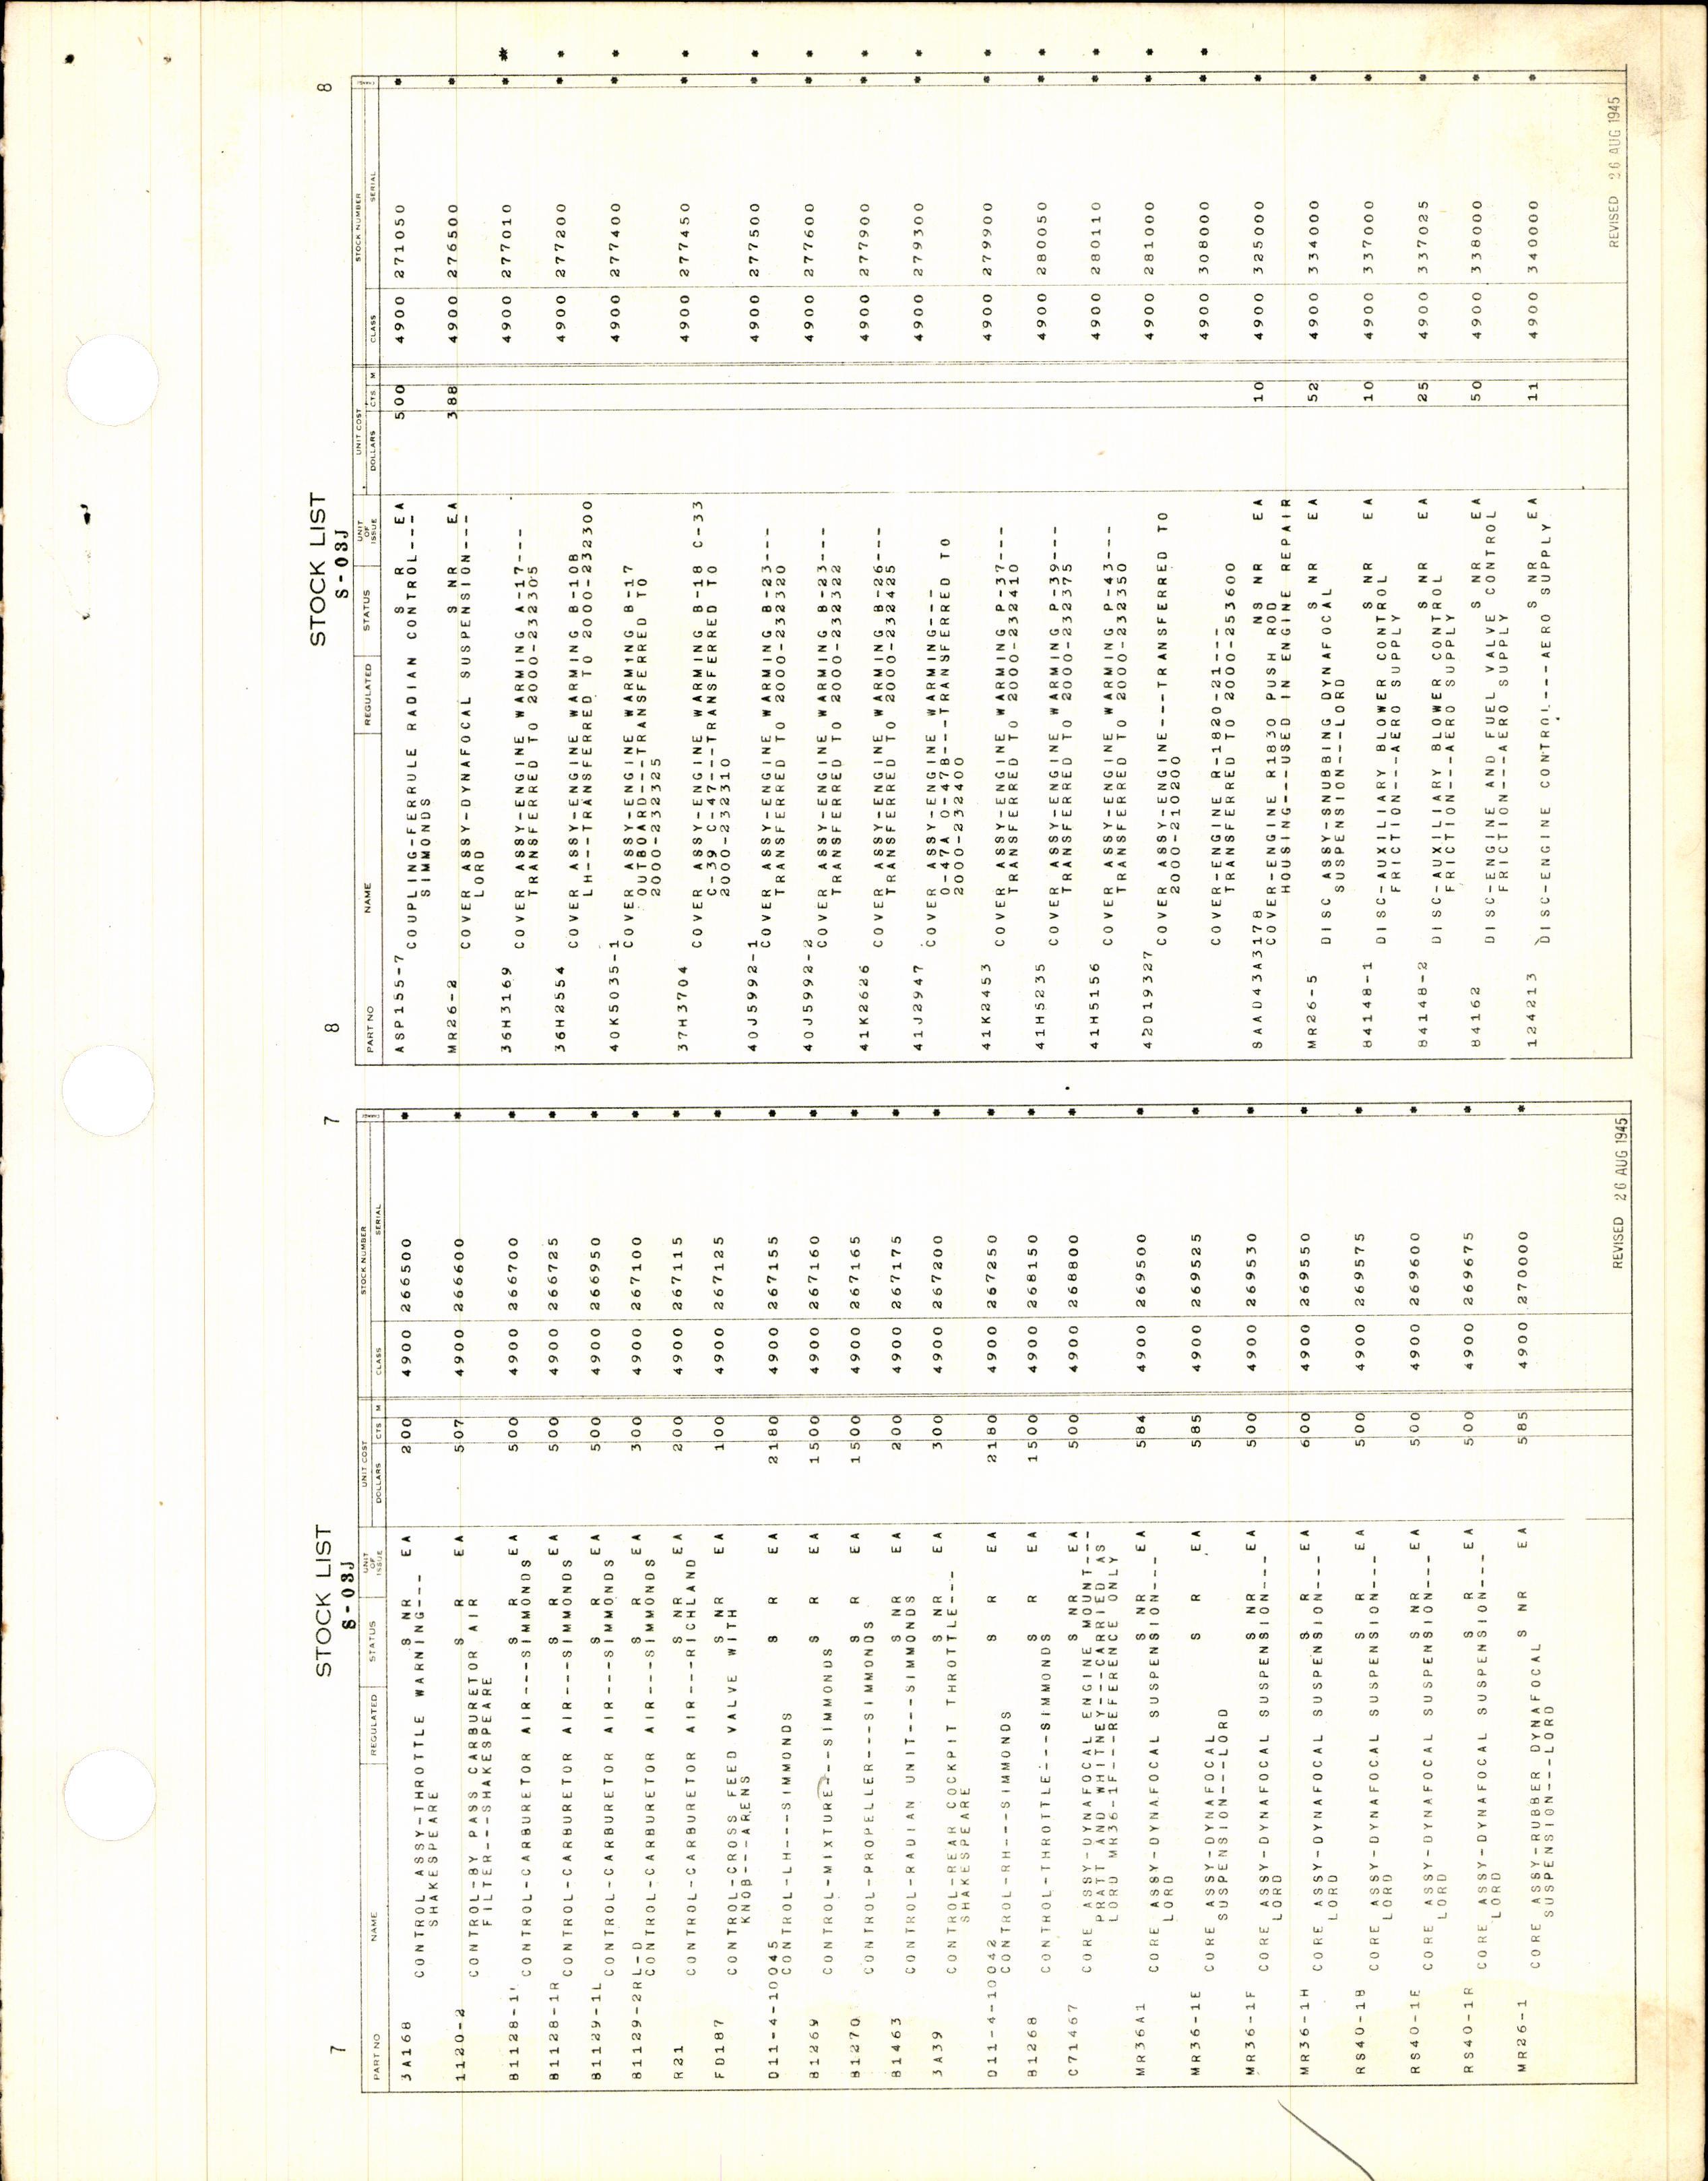 7 STOCK LIST 7
S-03J
PART NO NAME REGULATED STATUS UNIT OF ISSUE UNIT COST DOLLARS CTS M STOCK NUMBER CLASS SERIAL
3A168 CONTROL ASSY-THROTTLE WARNING--- S NR EA 200 4900 266500 *
SHAKESPEARE
1120-2 CONTROL-BY PASS CARBURETOR AIR S R EA 507 4900 266600 *
FILTER---SHAKESPEARE
B1128-1 CONTROL-CARBURETOR AIR---SIMMONDS S R EA 500 4900 266700 *
B1128-1R CONTROL-CARBURETOR AIR---SIMMONDS S R EA 500 4900 266725 *
B1129-1L CONTROL-CARBURETOR AIR---SIMMONDS S R EA 500 4900 266950 *
B1129-2RL-D CONTROL-CARBURETOR AIR---SIMMONDS S R EA 300 4900 267100 *
R21 CONTROL-CARBURETOR AIR---RICHLAND S NR EA 200 4900 267115 *
FD187 CONTROL-CROSS FEED VALVE WITH S NR EA 100 4900 267125 *
KNOB---ARENS
D11-4-10045 CONTROL-LH---SIMMONDS S R EA 2180 4900 267155 *
B1269 CONTROL-MIXTURE---SIMMONDS S R EA 1500 4900 267160 *
B1270 CONTROL-PROPELLER---SIMMONDS S R EA 1500 4900 267165 *
B1463 CONTROL-RADIAN UNIT---SIMMONDS S NR EA 200 4900 267175 *
3A39 CONTROL-REAR COCKPIT THROTTLE--- S NR EA 300 4900 267200 *
SHAKESPEARE
D11-4-10042 CONTROL-RH---SIMMONDS S R EA 2180 4900 267250 *
B1268 CONTROL-THROTTLE---SIMMONDS S R EA 1500 4900 268150 *
C71467 CORE ASSY-DYNAFOCAL ENGINE MOUNT--- S NR EA 500 4900 268800 *
PRATT AND WHITNEY---CARRIED AS
LORD MR36-1F---REFERENCE ONLY
MR36A1 CORE ASSY-DYNAFOCAL SUSPENSION--- S NR EA 584 4900 269500 *
LORD
MR36-1E CORE ASSY-DYNAFOCAL S R EA 585 4900 269525 *
SUSPENSION---LORD
MR36-1F CORE ASSY-DYNAFOCAL SUSPENSION--- S NR EA 500 4900 269530 *
LORD
MR36-1H CORE ASSY-DYNAFOCAL SUSPENSION--- S R EA 600 4900 269550 *
LORD
RS40-1B CORE ASSY-DYNAFOCAL SUSPENSION--- S R EA 500 4900 269575 *
LORD
RS40-1E CORE ASSY-DYNAFOCAL SUSPENSION--- S NR EA 500 4900 269600 *
LORD
RS40-1R CORE ASSY-DYNAFOCAL SUSPENSION--- S R EA 500 4900 269675 *
LORD
MR26-1 CORE ASSY-RUBBER DYNAFOCAL S NR EA 585 4900 270000 *
SUSPENSION---LORD
REVISED 26 AUG 1945
8 STOCK LIST 8
S-03J
PART NO NAME REGULATED STATUS UNIT OF ISSUE UNIT COST DOLLARS CTS M STOCK NUMBER CLASS SERIAL
ASP155-7 COUPLING-FERRULE RADIAN CONTROL--- S R EA 500 4900 271050 *
SIMMONDS
MR26-2 COVER ASSY-DYNAFOCAL SUSPENSION--- S NR EA 388 4900 276500 *
LORD
36H3169 COVER ASSY-ENGINE WARMING A-17--- 4900 277010 * *
TRANSFERRED TO 2000-232305
36H2554 COVER ASSY-ENGINE WARMING B-10B 4900 277200 * *
LH---TRANSFERRED TO 2000-232300
40K5035-1 COVER ASSY-ENGINE WARMING B-17 4900 277400 * *
OUTBOARD---TRANSFERRED TO
2000-232325
37H3704 COVER ASSY-ENGINE WARMING B-18 C-33 4900 277450 * *
C-39 C-47---TRANSFERRED TO
2000-232310
40J5992-1 COVER ASSY-ENGINE WARMING B-23--- 4900 277500 * *
TRANSFERRED TO 2000-232320
40J5992-2 COVER ASSY-ENGINE WARMING B-23--- 4900 277600 * *
TRANSFERRED TO 2000-232322
41K2626 COVER ASSY-ENGINE WARMING B-26--- 4900 277900 * *
TRANSFERRED TO 2000-232425
41J2947 COVER ASSY-ENGINE WARMING--- 4900 279300 * *
O-47A O-47B---TRANSFERRED TO
2000-232400
41K2453 COVER ASSY-ENGINE WARMING P-37--- 4900 279900 * *
TRANSFERRED TO 2000-232410
41H5235 COVER ASSY-ENGINE WARMING P-39--- 4900 280050 * *
TRANSFERRED TO 2000-232375
41H5156 COVER ASSY-ENGINE WARMING P-43--- 4900 280110 * *
TRANSFERRED TO 2000-232350
42D19327 COVER ASSY-ENGINE---TRANSFERRED TO 4900 281000 * *
2000-210200
COVER-ENGINE R-1820-21--- 4900 308000 * *
TRANSFERRED TO 2000-253600
SAAD43A3178 COVER-ENGINE R1830 PUSH ROD NS NR EA 10 4900 325000 *
HOUSING---USED IN ENGINE REPAIR
MR26-5 DISC ASSY-SNUBBING DYNAFOCAL S NR EA 52 4900 334000 *
SUSPENSION---LORD
84148-1 DISC-AUXILIARY BLOWER CONTROL S NR EA 10 4900 337000 *
FRICTION---AERO SUPPLY
84148-2 DISC-AUXILIARY BLOWER CONTROL S NR EA 25 4900 337025 *
FRICTION---AERO SUPPLY
84162 DISC-ENGINE AND FUEL VALVE CONTROL S NR EA 50 4900 338000 *
FRICTION---AERO SUPPLY
124213 DISC-ENGINE CONTROL---AERO SUPPLY S NR EA 11 4900 340000 *
REVISED 26 AUG 1945